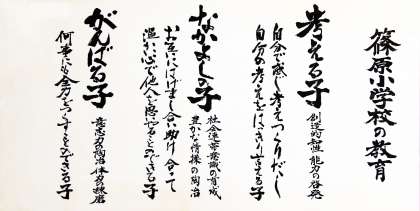 篠原小学校の教育
考える子
創造的知性 能力の啓発
自分で感じ考えつくりだし
自分の考えをはっきり言える子
なかよしの子
社会連帯意識の育成
豊かな情操の陶冶
お互にはげまし合い助け合って
温かい心で他人を思いやることのできる子
がんばる子
意志力の陶冶 体力の練磨
何事にも全力をつくすことのできる子